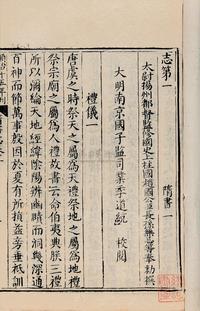 志第一　隋書一
太尉揚州都督監修國史上柱國趙國公臣長孫無忌等奉勅撰
大明南京國子監司業季道統　校閱
禮儀一
唐虞之時祭天之屬爲天禮祭地之屬爲地禮
祭宗廟之屬爲人禮故書云命伯夷典朕三禮
所以彌綸天地經緯陰陽辨幽賾而洞幾深通
百神而節萬事殷因於夏有所損益旁垂祗訓